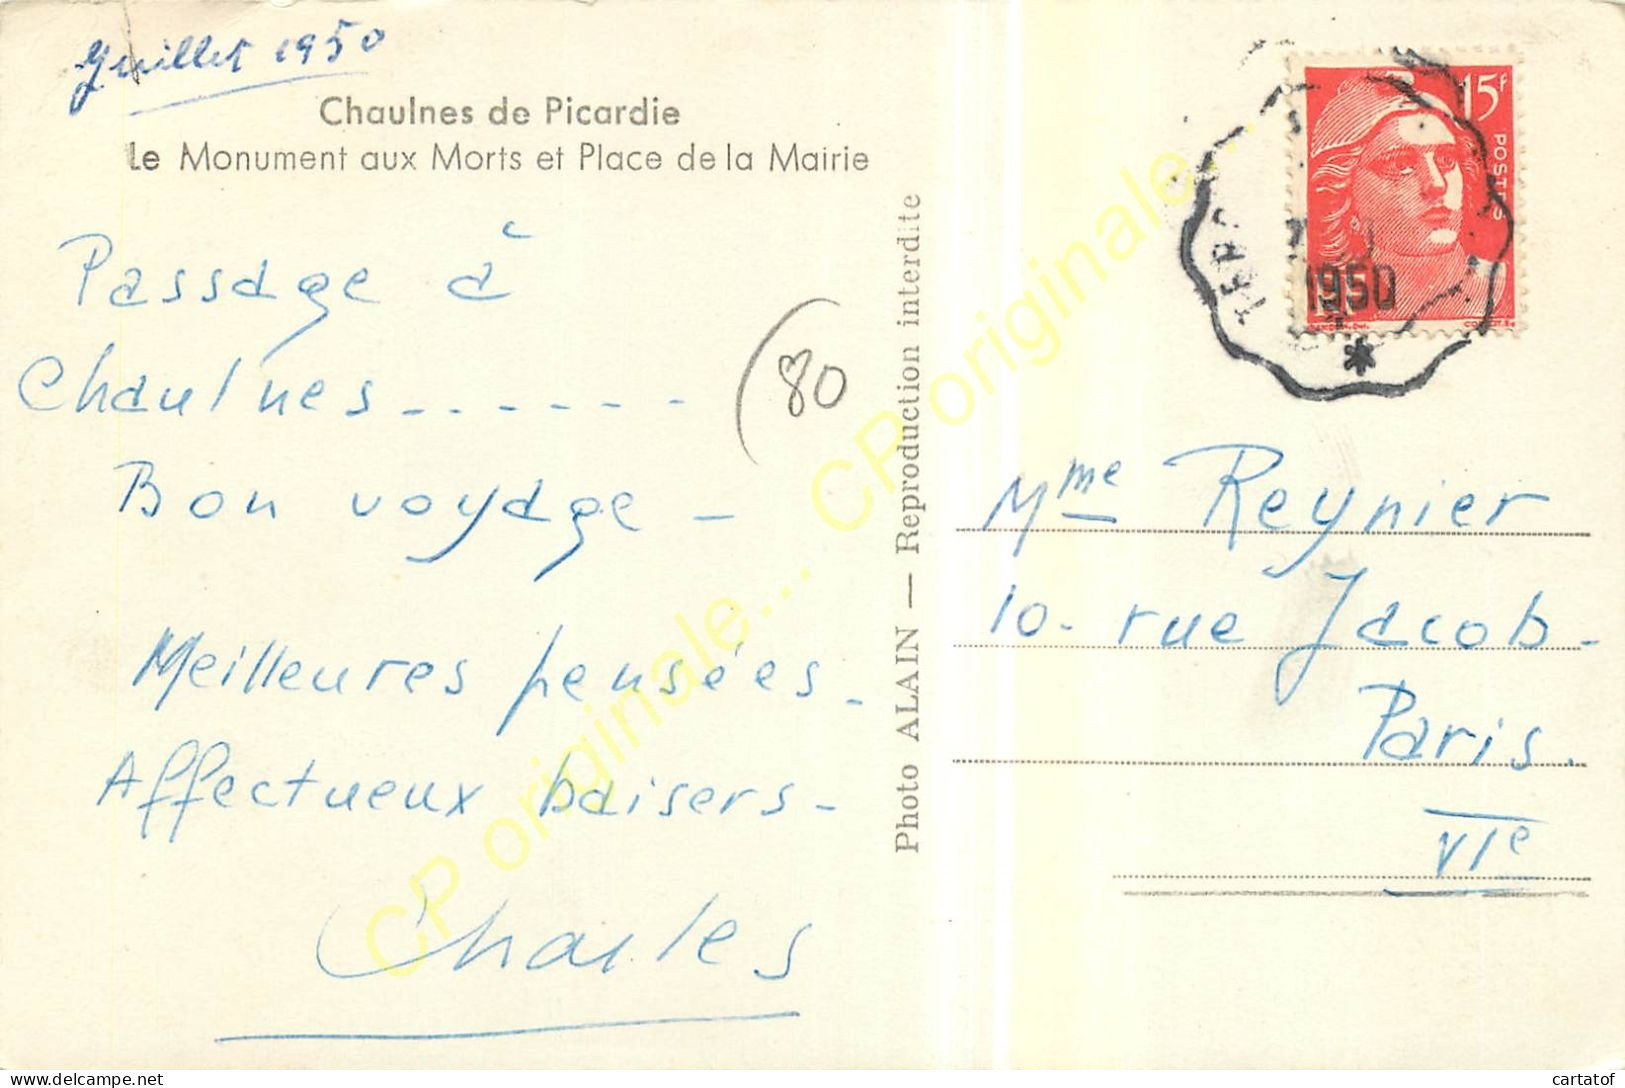 Juillet 1950
Chaulnes de Picardie
Le Monument aux Morts et Place de la Mairie
Passage à
Chaulnes - - - - - -
Bon voyage -
Meilleures pensées -
Affectueux baisers -
Charles
(80
Photo ALAIN — Reproduction interdite
15F
POSTES
1950
Mme Reynier
10 - rue Jacob -
Paris.
VIe
CP originale...
CP originale...
CP originale...
cartatof